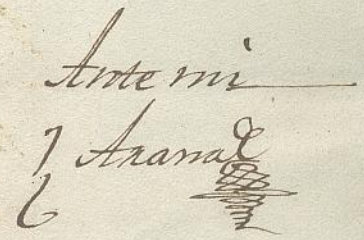 Ante mi
Arana